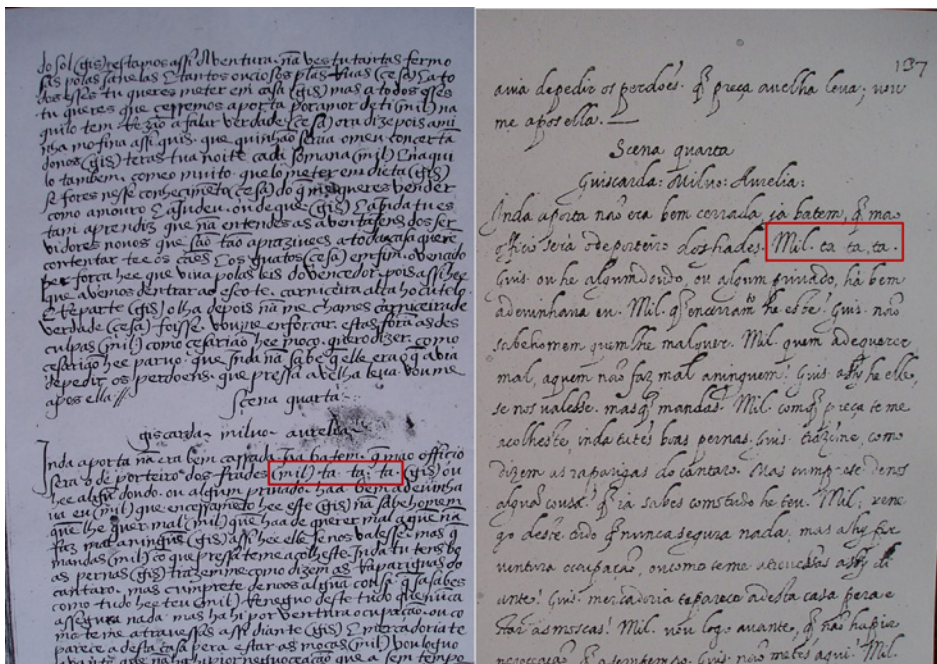 do sol (gis) restamos assi Aventura. nã ves tu tantas fermo
sas polas janelas E tantos onciosos plas Ruas (cesa) Ea to
dos esses tu queres meter em casa (gis) mas a todos esses
tu queres que cerremos aporta por amor de ti (mil) na
quilo tem Rezão a falar verdade (cesa) ora dizepois a mi
nha mofina assi quis. que quinhão sera o meu concerta
donos (gis) teras tua noite cada somana (mil) E naqui
lo tambem. comeo muito. que lo meter em dieta (gis)
se fores nesse conhecimẽto (cesa) do q me queres vender
como amouro E a Judeu. ou de que (gis) E ajnda tu es
tam aprendiz que nã entendes as aventatẽs dos ser
vidores novos que são tão aprazivees a toda casa quere
contentar tee os cães E os guatos (cesa) em fim. o vencido
hee forca hee que viva polas leis do vencedor. pois assi hee
que avemos dentrar ao escote. carniceira alta ho cutelo
E Reparte (gis) olha depois nã me chames carniceira de
verdade (cesa) foisse. voume enforcar. estas forã as des
culpas (mil) como cesarião hee moço. quero dizer. como
cesarião hee parvo. que Inda nã sabe q elle era o q avia
depedir os perdoens. que pressa avelha leva. vou me
apos ella //
Scena quarta
giscarda - milvo - aurelia
Inda aporta nã era bem cerrada. Jaa batem. q mao officio
sera o de porteiro dos frades (mil) ta. ta. ta (gis) ou
hee algũ doudo. ou algum privado. haa bem adevinha
va eu (mil) que encerramẽto hee este (gis) nã sabe homem
que lhe quer mal (mil) que haa de querer mal a que nã
faz mal a ninguẽ (gis) assi hee elle se nos valesse. mas q
mandas (mil) co que pressa teme acolheste. Inda tu tens bo
as pernas (gis) trazemine como dizem as Raparigas do
cantaro. mas cumprete denoos algũa cousa. q ja sabes
como tudo hee teu (mil) Renego deste tudo que nũca
assegura nada. mas ha hi por ventura ocupacão. ou co
mo teme atravessas assi diante (gis) E mercadoria te
parece a desta casa pera estar as moscas (mil) vou loguo
137
avia de pedir os perdoẽs. q preça avelha leva; vou
me apos ella.
Scena quarta
Guiscarda: Milvo: Aurelia:
Inda aporta não era bem cerrada, ja batem, q mao
officio serà o de porteiro dos frades. Mil. ta ta, ta.
Guis. ou he algum doudo, ou algum privado, há bem
adevinhava eu. Mil. q encerram.to he este? Guis. não
sabe homem quem lhe mal quer. Mil. quem àde querer
mal, aquem não faz mal aninguem? Guis. assy he elle,
se nos valesse. mas q mandas? Mil. com q preça te me
acolheste, inda tu tẽs boas pernas. Guis. trazime, como
dizem as raparigas do cantaro. Mas cumpre-te denos
algũa cousa? q ja sabes como tudo he teu. Mil. rene
go deste tudo q nunca segura nada, mas a hy per
ventura occupação, ou como te me atravessas assy di
ante? Guis. mercadoria te parece a desta casa pera e
star as moscas? Mil. vou logo avante, q não ha pior
negoceação q a sem tempo. Guis. não metes aqui? Mil.